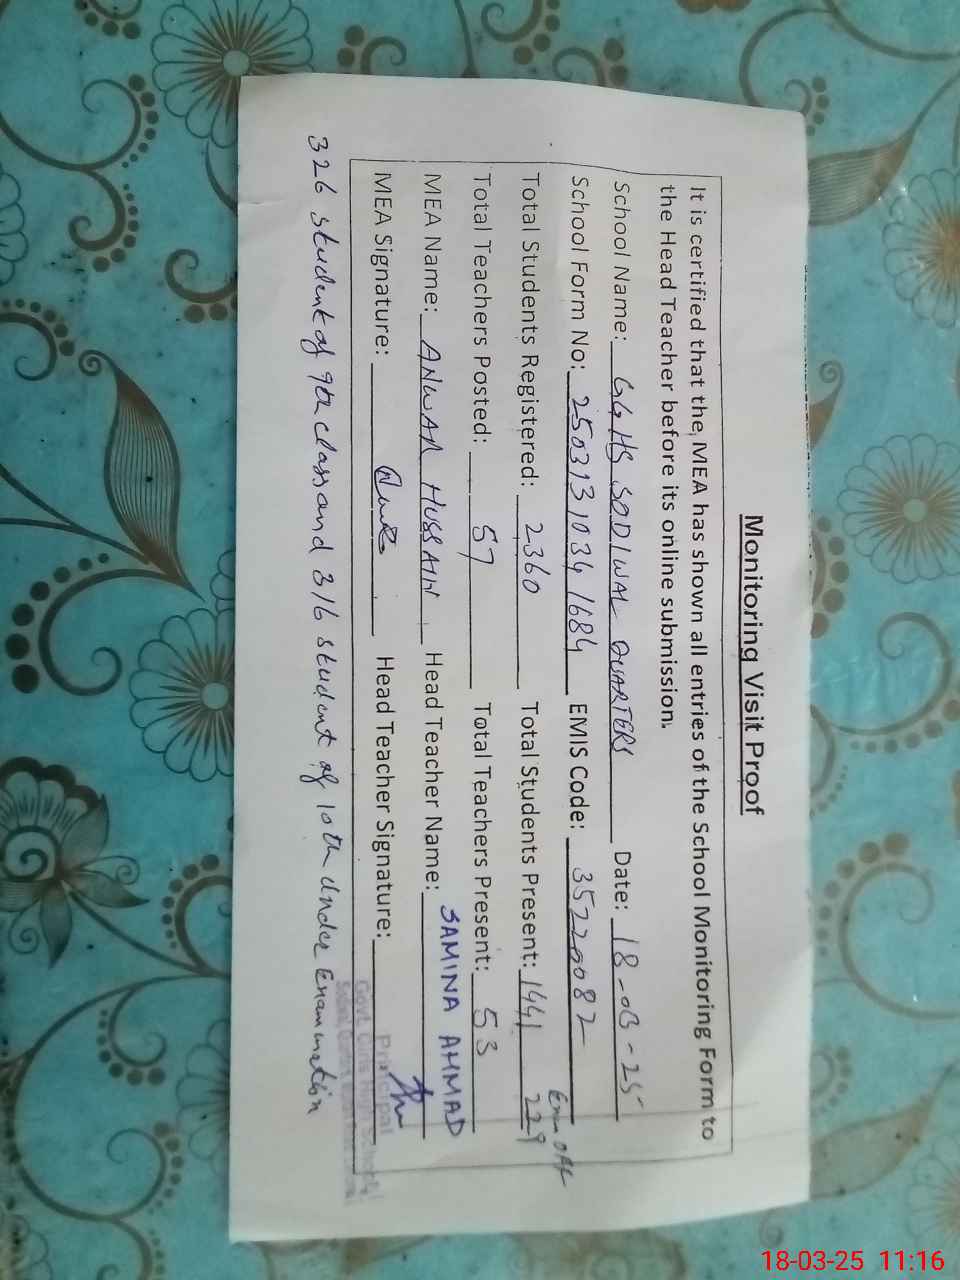 Monitoring Visit Proof
It is certified that the MEA has shown all entries of the School Monitoring Form to
the Head Teacher before its online submission.
School Name: GGHS SODIWAL QUARTERS Date: 18-03-25
School Form No: 2503131034 1684 EMIS Code: 35220082
Exam off
Total Students Registered: 2360 Total Students Present: 1441 229
Total Teachers Posted: 57 Total Teachers Present: 53
MEA Name: ANWAR HUSSAIN Head Teacher Name: SAMINA AHMAD
MEA Signature: Head Teacher Signature:
Principal
Govt. Girls High School
326 student of 9th class and 316 student of 10th under Examination
18-03-25 11:16